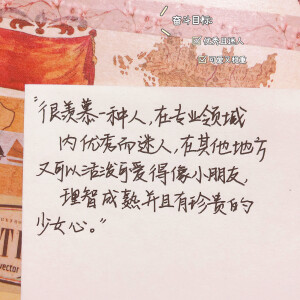 奋斗目标
“很羡慕一种人,在专业领域
内优秀而迷人,在其他地方
又可以活泼可爱得像小朋友,
理智成熟并且有珍贵的
少女心。”
vector